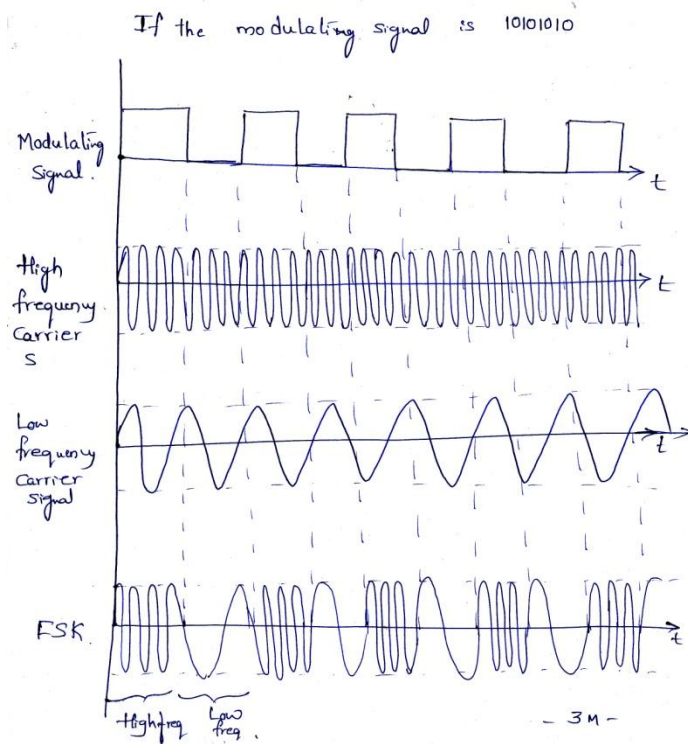 If the modulating signal is 10101010
Modulating
Signal.
t
High
frequency
Carrier
S
t
Low
frequency
Carrier
Signal
t
FSK.
t
High freq
Low
freq.
- 3M -